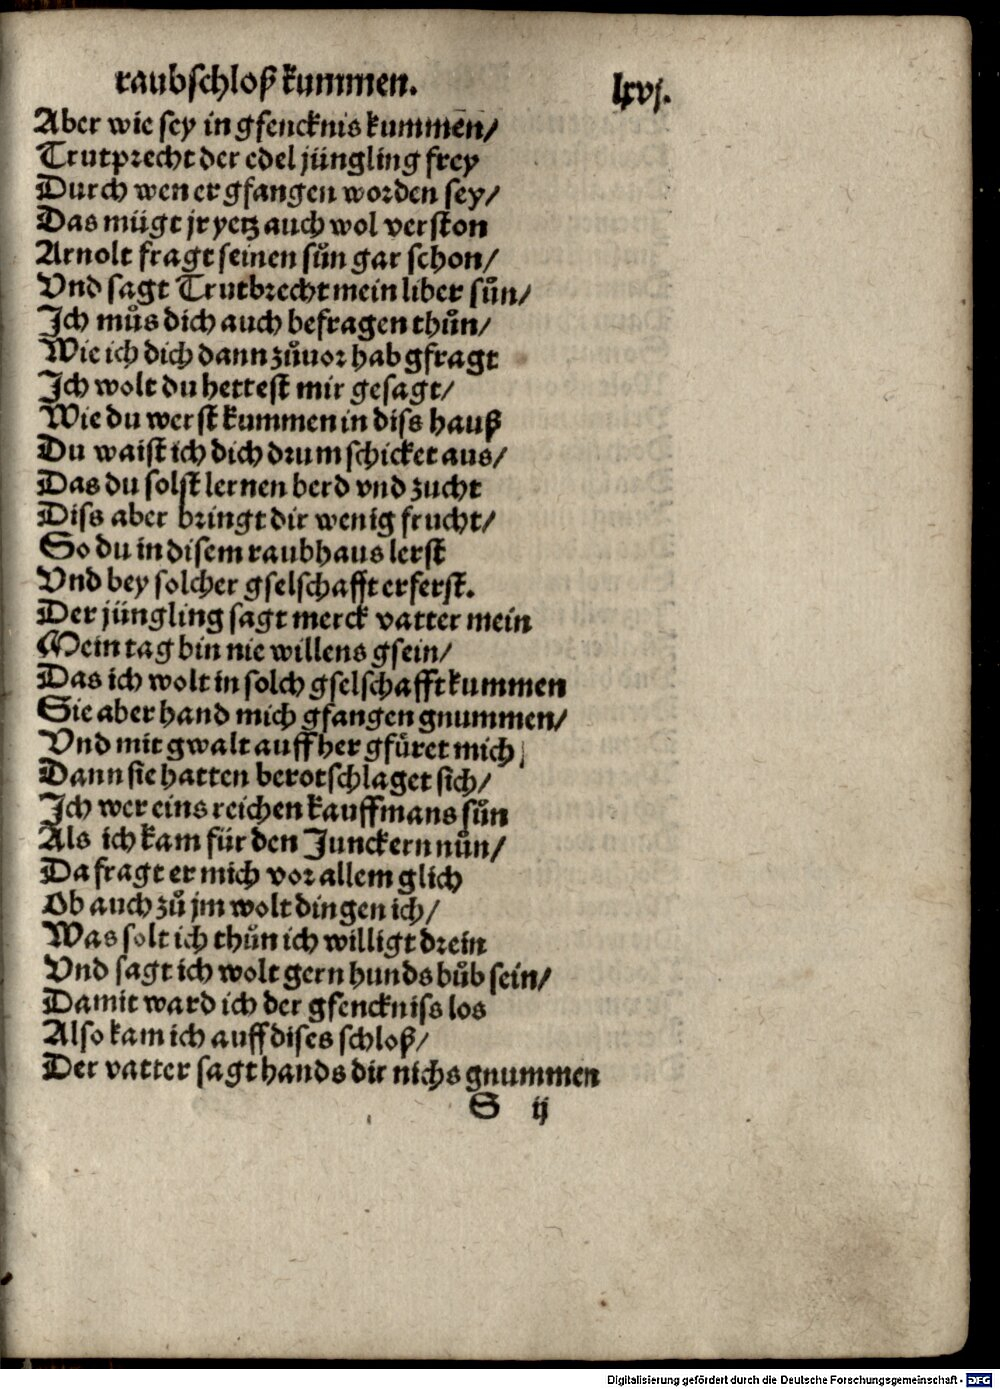 raubschloß kummen. lxvj.
Aber wie sey in gfencknis kummen/
Trutprecht der edel jüngling frey
Durch wen er gfangen worden sey/
Das mügt jr yetz auch wol verston
Arnolt fragt seinen sůn gar schon/
Vnd sagt Trutbrecht mein liber sůn/
Ich můs dich auch befragen thůn/
Wie ich dich dann zůuor hab gfragt
Ich wolt du hettest mir gesagt/
Wie du werst kummen in diss hauß
Du waist ich dich drum schicket aus/
Das du solst lernen berd vnd zucht
Diss aber bringt dir wenig frucht/
So du in disem raubhaus lerst
Vnd bey solcher gselschafft erferst.
Der jüngling sagt merck vatter mein
Mein tag bin nie willens gsein/
Das ich wolt in solch gselschafft kummen
Sie aber hand mich gfangen gnummen/
Vnd mit gwalt auff her gfüret mich/
Dann sie hatten berotschlaget sich/
Ich wer eins reichen kauffmans sůn
Als ich kam für den Junckern nůn/
Da fragt er mich vor allem glich
Ob auch zů jm wolt dingen ich/
Was solt ich thůn ich willigt drein
Vnd sagt ich wolt gern hunds bůb sein/
Damit ward ich der gfenckniss los
Also kam ich auff dises schloß/
Der vatter sagt hands dir nichs gnummen
S ij
Digitalisierung gefördert durch die Deutsche Forschungsgemeinschaft - DFG